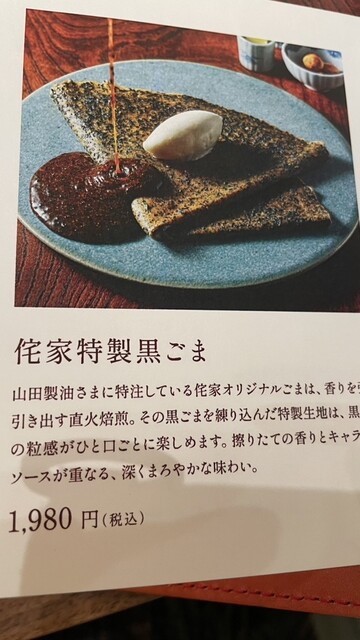 侘家特製黒ごま
山田製油さまに特注している侘家オリジナルごまは、香りを
引き出す直火焙煎。その黒ごまを練り込んだ特製生地は、黒
の粒感がひと口ごとに楽しめます。擦りたての香りとキャラ
ソースが重なる、深くまろやかな味わい。
1,980 円(税込)